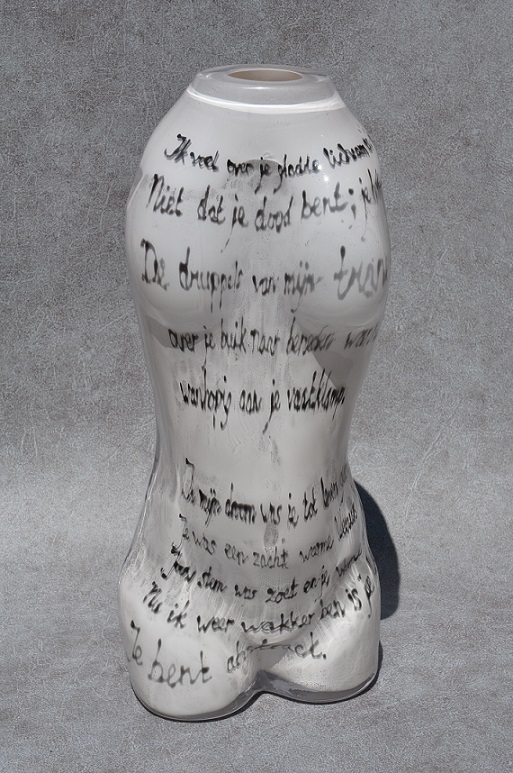 Ik voel over je gladde lichaam
Niet dat je dood bent; je
De druppels van mijn tran
over je buik naar beneden
wanhopig aan je vastklamp
In mijn droom was je tot leven
Je was een zacht warme
Jouw stem was zoet en je
Nu ik weer wakker ben is je
Je bent abstract.